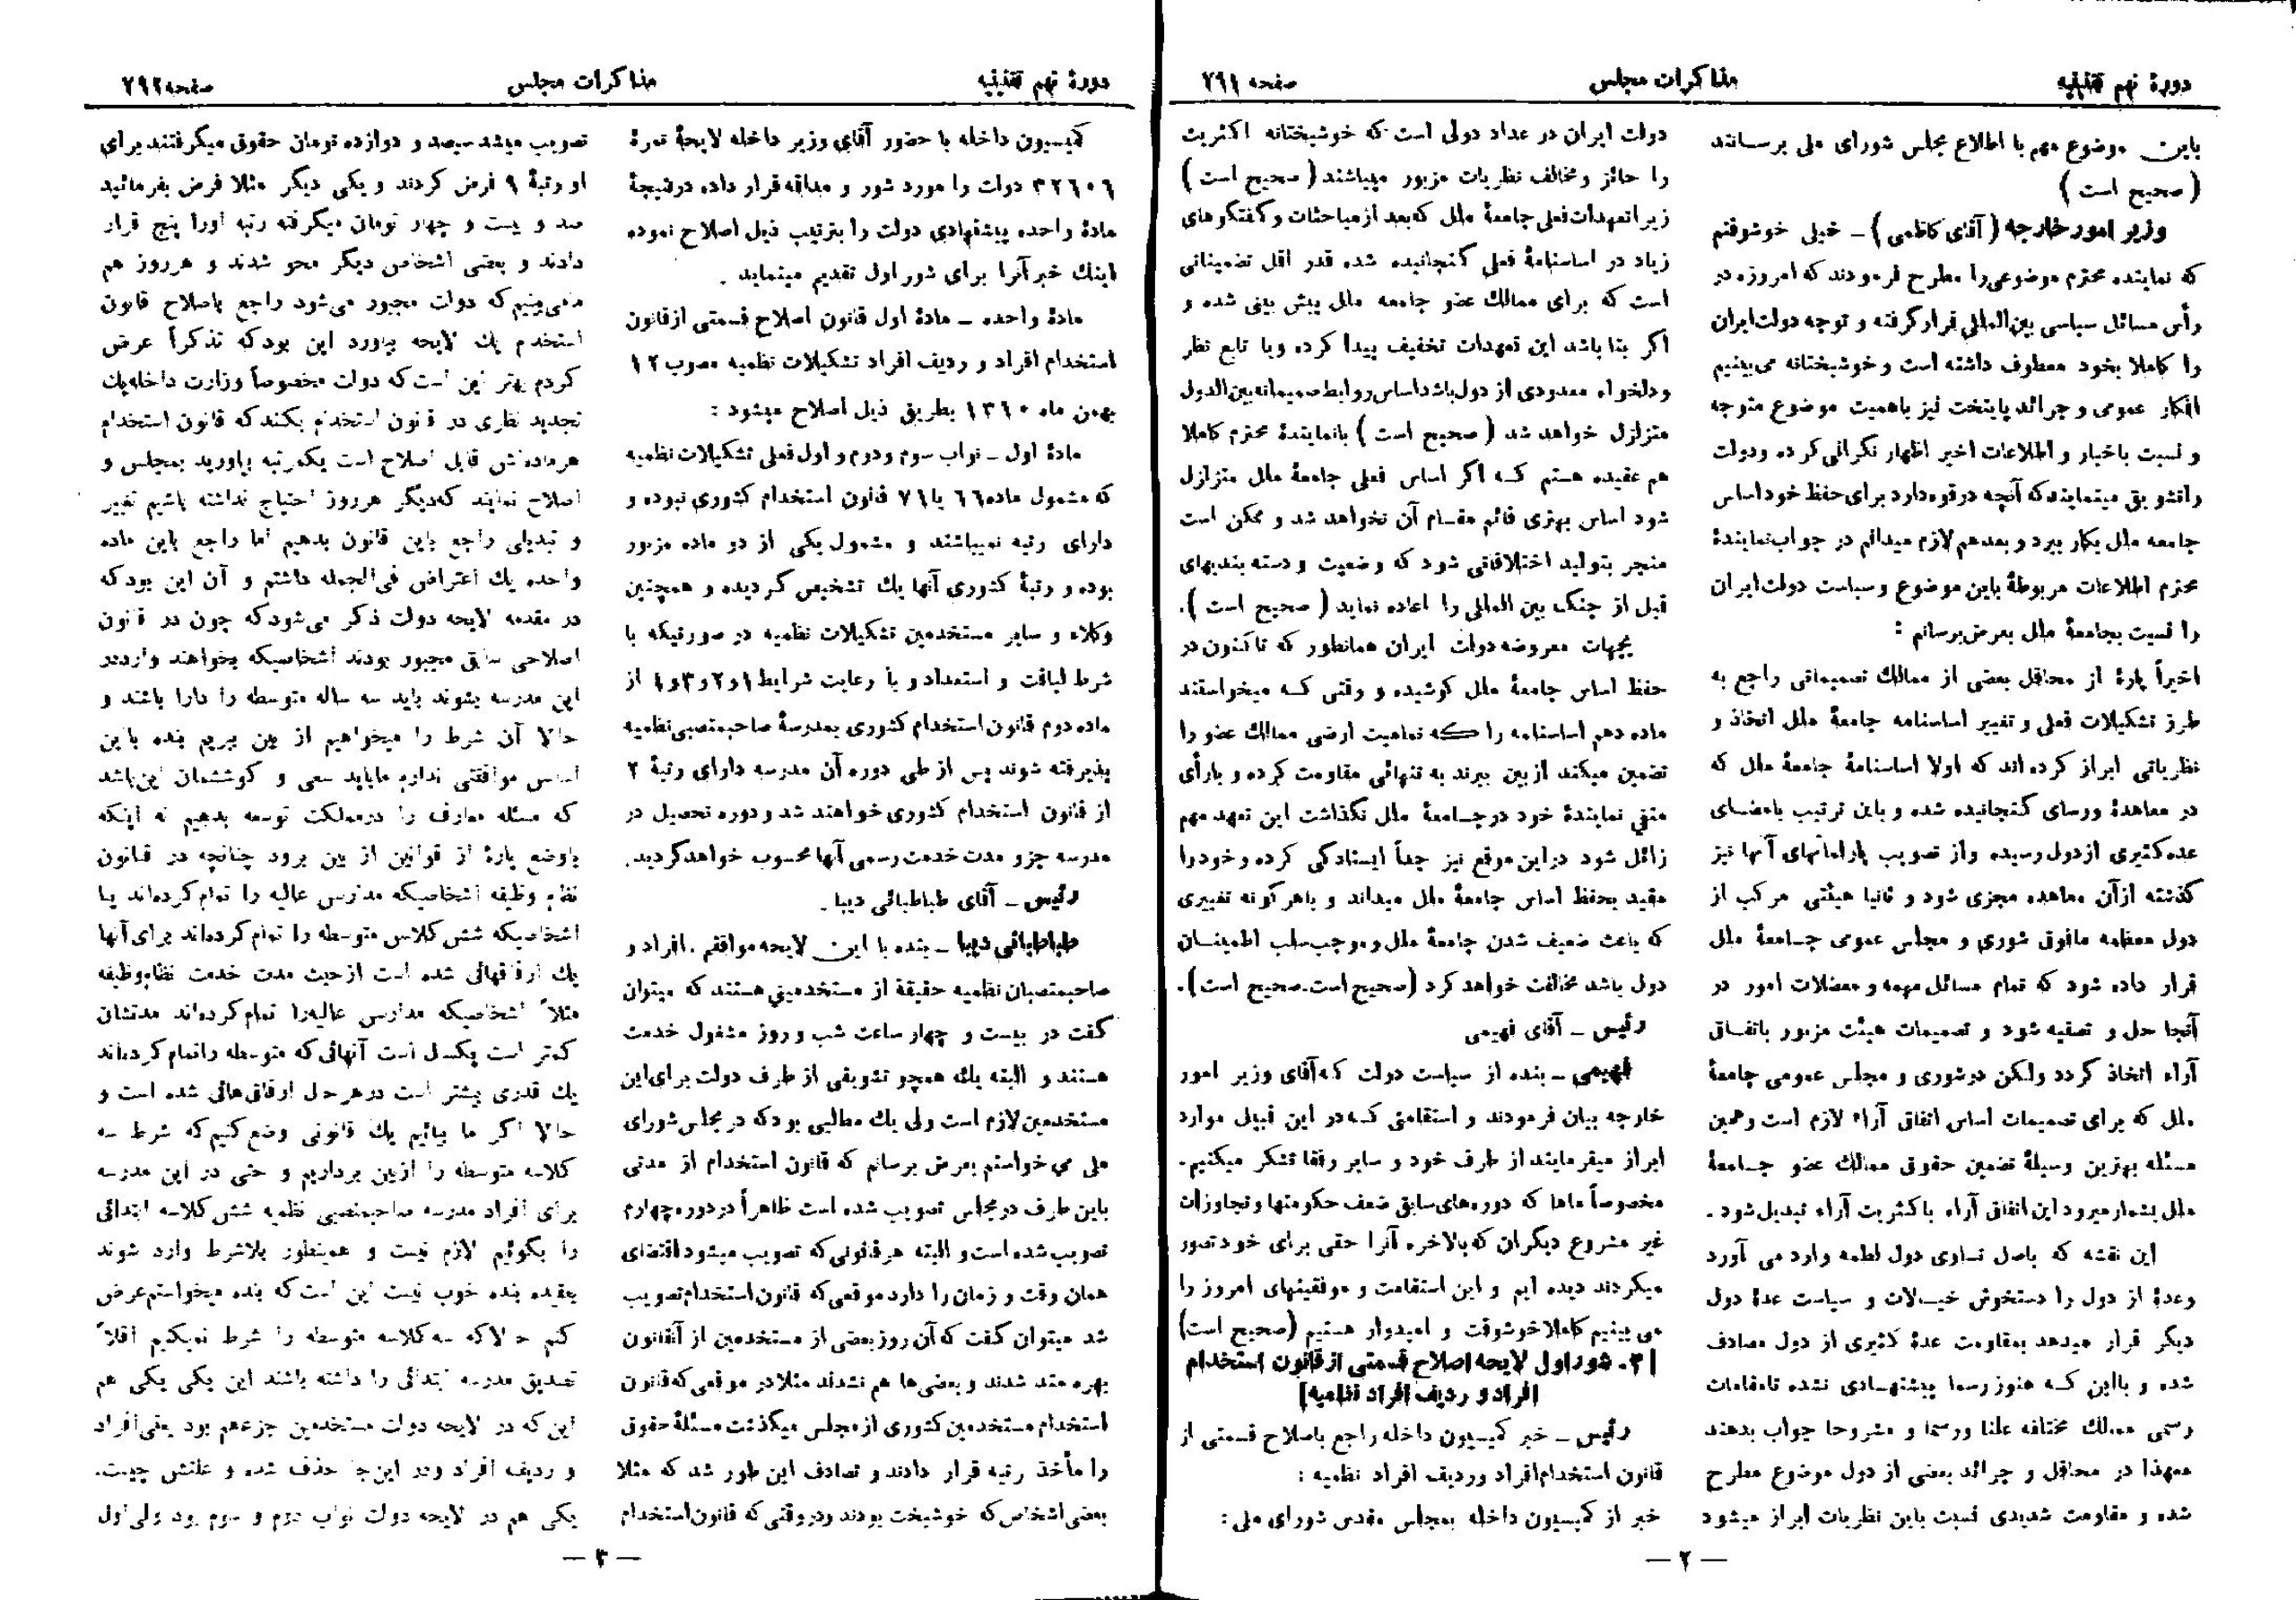 دورهٔ نهم تقنینیه
مذاکرات مجلس
صفحه ۷۹۱
باین موضوع مهم با اطلاع مجلس شورای ملی برسانند
(صحیح است)
وزیر امور خارجه (آقای کاظمی) ـ خیلی خوشوقتم
که نماینده محترم موضوعی را مطرح فرمودند که امروزه در
رأس مسائل سیاسی بین‌المللی قرار گرفته و توجه دولت ایران
را کاملا بخود معطوف داشته است و خوشبختانه می‌بینیم
افکار عمومی و جرائد پایتخت نیز باهمیت موضوع متوجه
و نسبت باخبار و اطلاعات اخیر اظهار نگرانی کرده ودولت
را تشویق مینمایند که آنچه در قوه دارد برای حفظ خود اساس
جامعه ملل بکار ببرد و بعد هم لازم میدانم در جواب نمایندهٔ
محترم اطلاعات مربوطهٔ باین موضوع وسیاست دولت ایران
را نسبت بجامعهٔ ملل بعرض برسانم :
اخیراً پارهٔ از محافل بعضی از ممالک تصمیماتی راجع به
طرز تشکیلات فعلی و تغییر اساسنامه جامعهٔ ملل اتخاذ و
نظریاتی ابراز کرده‌اند که اولا اساسنامهٔ جامعهٔ ملل که
در معاهدهٔ ورسای گنجانیده شده و باین ترتیب بامضای
عده کثیری از دول رسیده واز تصویب پارلمانهای آنها نیز
گذشته از آن معاهده مجزی شود و ثانیا هیئتی مرکب از
دول معظمه مافوق شوری و مجلس عمومی جامعهٔ ملل
قرار داده شود که تمام مسائل مهمه و معضلات امور در
آنجا حل و تصفیه شود و تصمیمات هیئت مزبور باتفاق
آراء اتخاذ گردد ولکن در شوری و مجلس عمومی جامعهٔ
ملل که برای تصمیمات اساس اتفاق آراء لازم است وهمین
مسئله بهترین وسیلهٔ تضمین حقوق ممالک عضو جامعهٔ
ملل بشمار میرود این اتفاق آراء باکثریت آراء تبدیل شود .
این نقشه که باصل تساوی دول لطمه وارد می آورد
وعدهٔ از دول را دستخوش خیالات و سیاست عدهٔ دول
دیگر قرار میدهد بمقاومت عدهٔ کثیری از دول مصادف
شده و بااین که هنوز رسما پیشنهادی نشده تا مقامات
رسمی ممالک مختلفه علنا ورسما و مشروحا جواب بدهند
معهذا در محافل و جرائد بعضی از دول موضوع مطرح
شده و مقاومت شدیدی نسبت باین نظریات ابراز میشود
دولت ایران در عداد دولی است که خوشبختانه اکثریت
را حائز ومخالف نظریات مزبور میباشند (صحیح است)
زیرا تعهدات فعلی جامعهٔ ملل که بعد از مباحثات و گفتگوهای
زیاد در اساسنامهٔ فعلی گنجانیده شده قدر اقل تضمیناتی
است که برای ممالک عضو جامعه ملل پیش بینی شده و
اگر بنا باشد این تعهدات تخفیف پیدا کرده ویا تابع نظر
ودلخواه معدودی از دول باشد اساس روابط صمیمانه بین‌الدول
متزلزل خواهد شد (صحیح است) با نمایندهٔ محترم کاملا
هم عقیده هستم که اگر اساس فعلی جامعهٔ ملل متزلزل
شود اساس بهتری قائم مقام آن نخواهد شد و ممکن است
منجر بتولید اختلافاتی شود که وضعیت و دسته بندیهای
قبل از جنگ بین المللی را اعاده نماید (صحیح است).
بجهات معروضه دولت ایران همانطور که تا کنون در
حفظ اساس جامعهٔ ملل کوشیده و وقتی که میخواستند
ماده دهم اساسنامه را که تمامیت ارضی ممالک عضو را
تضمین میکند از بین ببرند به تنهائی مقاومت کرده و بارأی
منفی نمایندهٔ خود در جامعهٔ ملل نگذاشت این تعهد مهم
زائل شود در این موقع نیز جداً ایستادگی کرده و خود را
مقید بحفظ اساس جامعهٔ ملل میداند و باهرگونه تغییری
که باعث ضعیف شدن جامعهٔ ملل و موجب سلب اطمینان
دول باشد مخالفت خواهد کرد (صحیح است. صحیح است).
رئیس ـ آقای فهیمی
فهیمی ـ بنده از سیاست دولت که آقای وزیر امور
خارجه بیان فرمودند و استقامتی که در این قبیل موارد
ابراز میفرمایند از طرف خود و سایر رفقا تشکر میکنیم.
مخصوصاً ماها که دوره‌های سابق ضعف حکومتها و تجاوزات
غیر مشروع دیگران که بالاخره آنرا حقی برای خود تصور
میکردند دیده ایم و این استقامت و موفقیتهای امروز را
می بینیم کاملا خوشوقت و امیدوار هستیم (صحیح است)
[۳ـ شور اول لایحه اصلاح قسمتی از قانون استخدام
افراد و ردیف افراد نظمیه]
رئیس ـ خبر کمیسیون داخله راجع باصلاح قسمتی از
قانون استخدام افراد وردیف افراد نظمیه :
خبر از کمیسیون داخله بمجلس مقدس شورای ملی :
— ۲ —
دورهٔ نهم تقنینیه
مذاکرات مجلس
صفحه ۷۹۲
کمیسیون داخله با حضور آقای وزیر داخله لایحهٔ نمرهٔ
۳۲۶۰۶ دولت را مورد شور و مداقه قرار داده در نتیجهٔ
مادهٔ واحده پیشنهادی دولت را بترتیب ذیل اصلاح نموده
اینك خبر آنرا برای شور اول تقدیم مینماید .
مادهٔ واحده ـ مادهٔ اول قانون اصلاح قسمتی از قانون
استخدام افراد و ردیف افراد تشکیلات نظمیه مصوب ۱۲
بهمن ماه ۱۳۱۰ بطریق ذیل اصلاح میشود :
مادهٔ اول ـ نواب سوم و دوم و اول فعلی تشکیلات نظمیه
که مشمول ماده ۶۶ یا ۷۱ قانون استخدام کشوری نبوده و
دارای رتبه نمیباشند و مشمول یکی از دو ماده مزبور
بوده و رتبهٔ کشوری آنها یك تشخیص گردیده و همچنین
وکلاء و سایر مستخدمین تشکیلات نظمیه در صورتیکه با
شرط لیاقت و استعداد و با رعایت شرایط ۱و۲و۳و۴ از
ماده دوم قانون استخدام کشوری بمدرسهٔ صاحبمنصبی نظمیه
پذیرفته شوند پس از طی دوره آن مدرسه دارای رتبهٔ ۲
از قانون استخدام کشوری خواهند شد و دوره تحصیل در
مدرسه جزو مدت خدمت رسمی آنها محسوب خواهد گردید.
رئیس ـ آقای طباطبائی دیبا .
طباطبائی دیبا ـ بنده با این لایحه موافقم . افراد و
صاحبمنصبان نظمیه حقیقة از مستخدمینی هستند که میتوان
گفت در بیست و چهار ساعت شب و روز مشغول خدمت
هستند و البته یك همچو تشویقی از طرف دولت برای این
مستخدمین لازم است ولی یك مطالبی بود که در مجلس شورای
ملی می خواستم بعرض برسانم که قانون استخدام از مدتی
باین طرف در مجلس تصویب شده است ظاهراً در دوره چهارم
تصویب شده است و البته هر قانونی که تصویب میشود اقتضای
همان وقت و زمان را دارد موقعی که قانون استخدام تصویب
شد میتوان گفت که آن روز بعضی از مستخدمین از آنقانون
بهره مند شدند و بعضی‌ها هم نشدند مثلا در موقعی که قانون
استخدام مستخدمین کشوری از مجلس میگذشت مسئلهٔ حقوق
را مأخذ رتبه قرار دادند و تصادف این طور شد که مثلا
بعضی اشخاص که خوشبخت بودند ودر وقتی که قانون استخدام
تصویب میشد سیصد و دوازده تومان حقوق میگرفتند برای
او رتبهٔ ۹ فرض کردند و یکی دیگر مثلا فرض بفرمائید
صد و بیست و چهار تومان میگرفته رتبه اورا پنج قرار
دادند و بعضی اشخاص دیگر محو شدند و هرروز هم
ما می‌بینیم که دولت مجبور می‌شود راجع باصلاح قانون
استخدام یك لایحه بیاورد این بود که تذکراً عرض
کردم بهتر این است که دولت مخصوصاً وزارت داخله یك
تجدید نظری در قانون استخدام بکند که قانون استخدام
هر ماده‌اش قابل اصلاح است یکمرتبه بیاورید بمجلس و
اصلاح نمایند که دیگر هرروز احتیاج نداشته باشیم تغییر
و تبدیلی راجع باین قانون بدهیم اما راجع باین ماده
واحده یك اعتراض فی‌الجمله داشتم و آن این بود که
در مقدمه لایحه دولت ذکر می‌شود که چون در قانون
اصلاحی سابق مجبور بودند اشخاصیکه بخواهند وارد در
این مدرسه بشوند باید سه ساله متوسطه را دارا باشند و
حالا آن شرط را میخواهیم از بین ببریم بنده با این
اساس موافقتی ندارم ما باید سعی و کوششمان این باشد
که مسئله معارف را در مملکت توسعه بدهیم نه اینکه
باوضع پارهٔ از قوانین از بین برود چنانچه در قانون
نظام وظیفه اشخاصیکه مدارس عالیه را تمام کرده‌اند یا
اشخاصیکه شش کلاس متوسطه را تمام کرده‌اند برای آنها
یك ارفاقهائی شده است از حیث مدت خدمت نظام وظیفه
مثلاً اشخاصیکه مدارس عالیه را تمام کرده‌اند مدتشان
کمتر است یکسال است آنهائی که متوسطه را تمام کرده‌اند
یك قدری بیشتر است در هر حال ارفاق‌هائی شده است و
حالا اگر ما بیائیم یك قانونی وضع کنیم که شرط سه
کلاسه متوسطه را از بین برداریم و حتی در این مدرسه
برای افراد مدرسه صاحبمنصبی نظمیه شش کلاسه ابتدائی
را بگوئیم لازم نیست و همینطور بلاشرط وارد شوند
بعقیده بنده خوب نیست این است که بنده میخواستم عرض
کنم حالا که سه کلاسه متوسطه را شرط نمیکنیم اقلاً
تصدیق مدرسه ابتدائی را داشته باشند این یکی یکی هم
این که در لایحه دولت مستخدمین جزء هم بود یعنی افراد
و ردیف افراد ودر این‌جا حذف شده و علتش چیست.
یکی هم در لایحه دولت نواب دوم و سوم بود ولی اول
— ۳ —